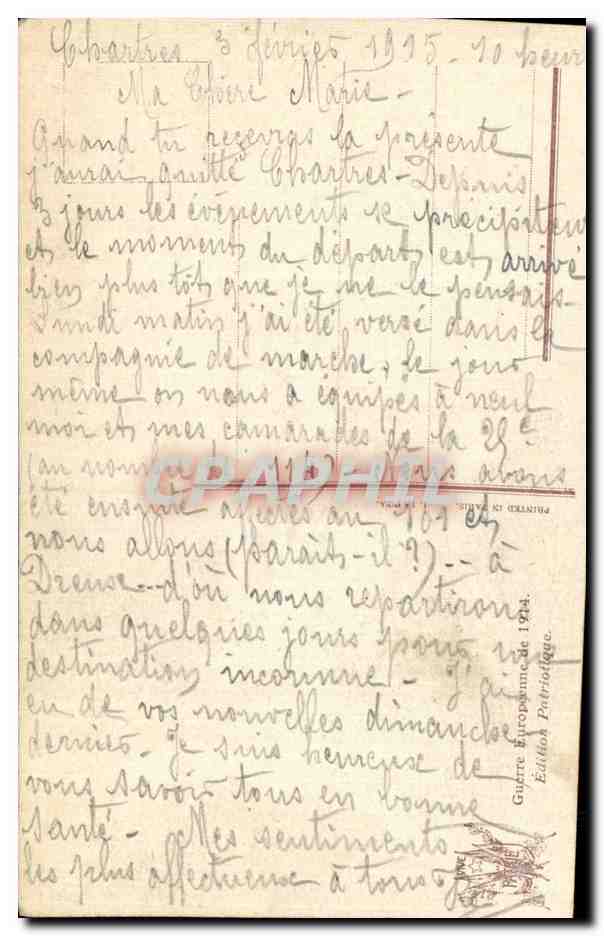 Chartres 3 février 1915 - 10 heur
Ma Chère Marie -
Quand tu recevras la présente
j'aurai quitté Chartres - Depuis
3 jours les évènements se précipiten
et le moment du départ est arrivé
bien plus tôt que je ne le pensais -
Lundi matin j'ai été versé dans la
compagnie de marche, le jour
même on nous a équipés à neuf
moi et mes camarades de la 29e
(au nombre de 118) - Nous avons
été ensuite affectés au 101 et
nous allons (paraît-il ?) -- à
Dreux -- d'où nous repartirons
dans quelques jours pour une
destination inconnue - J'ai
eu de vos nouvelles dimanche
dernier - Je suis heureux de
vous savoir tous en bonne
santé - Mes sentiments
les plus affectueux à tous
CPAPHIL.COM
PRINTED IN PARIS.
Guerre Européenne de 1914.
Édition Patriotique.